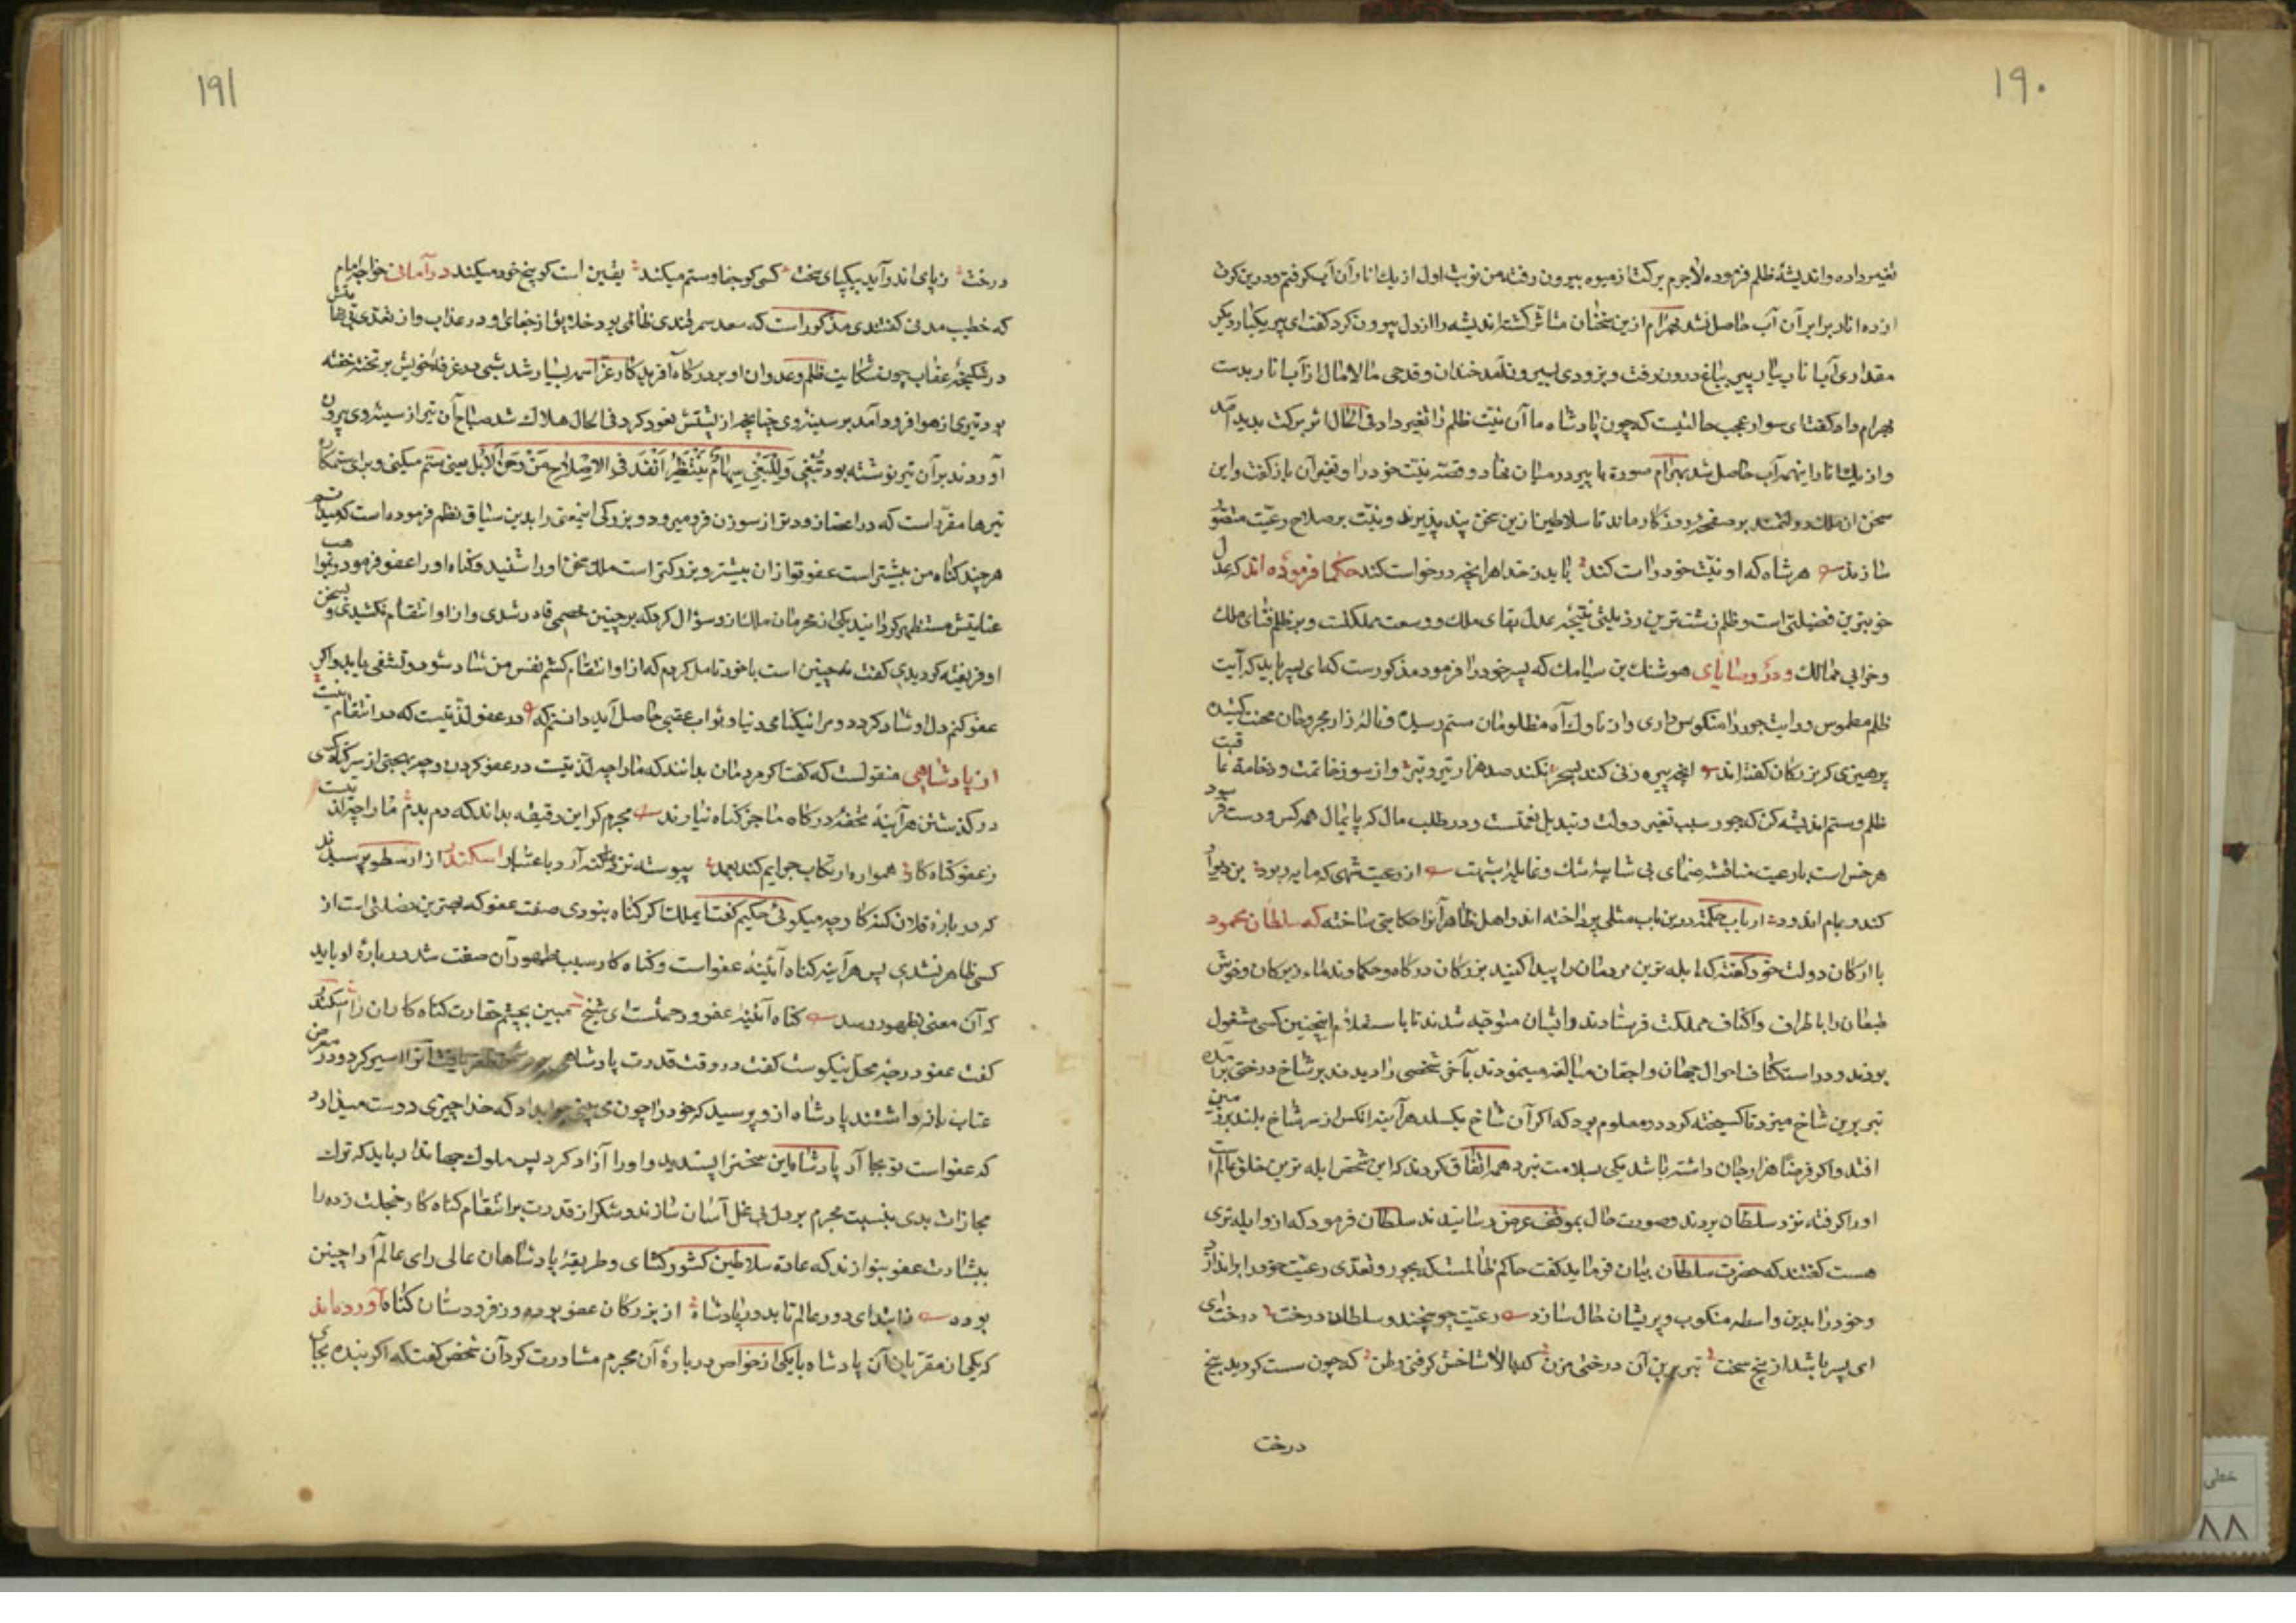 ۱۹۰
تغییر داده و اندیشهٔ ظلم فرموده لاجرم برکت از میوه بیرون رفته من نوبت اول از یک انار آن آب گرفتم و درین کرت
از ده انار برابر آن آب حاصل نشد بهرام ازین سخنان متاثر گشته اندیشه را از دل بیرون کرد گفت ای پیر یکبار دیگر
مقداری آب انار بیار پیر بباغ درون رفت و بزودی بیرون آمد خندان و قدحی مالامال از آب انار بدست
بهرام داد گفت ای سوار عجب حالتیست که چون پادشاه ما آن نیت ظلم را تغییر داد فی الحال اثر برکت پدید آمد
و از یک انار اینهمه آب حاصل شد بهرام صورة با پیر در میان نهاد و قصهٔ نیت خود را و تغیر آن باز گفت و این
سخن ان ملک دولتمند بر صفحهٔ روزگار ماند تا سلاطین ازین سخن پند پذیرند و نیت بر صلاح رعیت مقصور
سازند هر شاه که او نیت خود راست کند یابد ز خدا هرانچه درخواست کند حکما فرموده اند که عدل
خوبترین فضیلتی است و ظلم زشت ترین رذیلتی نتیجهٔ عدل بقای ملک و وسعت مملکتست و ظلم فنای ملک
و خرابی ممالک و در وصایای هوشنک بن سیامک که پسر خود را فرمود مذکورست که ای پسر باید که آیت
ظلم مطموس و رایت جور را منکوس داری و از ناوک آه مظلومان ستم رسیده و نالهٔ زار مجروحان محنت کشیده
پرهیزی که بزرکان گفته اند انچه پیره زنی کند بسحر نکند صد هزار تیر و تبر و از سوء خاتمت و وخامة عاقبت
ظلم و ستم اندیشه کن که جور سبب تغیر دولت و تبدیل نعمتست و در طلب مال که پایمال همه کس و دست فرسود
هر خس است با رعیت مناقشه منمای بی شایبهٔ شک و غایلهٔ شبهت از رعیت شهی که مایه ربود بن دیوار
کند و بام اندود ارباب حکمة درین باب مثلی پرداخته اند و اهل ظاهر آنرا حکایتی ساخته که سلطان محمود
با ارکان دولت خود گفت که ابله ترین مردمان را پیدا کنید بزرکان درگاه و حکما و ندماء زیرکان و خوش
طبعان را باطراف و اکناف مملکت فرستادند و ایشان متوجه شدند تا باستعلام اینچنین کسی مشغول
بودند و در استکشاف احوال جهان و اجقان مبالغه مینمودند بآخر شخصی را دیدند بر شاخ درختی برآمده
تبر برین شاخ میزد تا گسیخته کردد و معلوم بود که اگر آن شاخ بکسلد هرآینه انکس از سر شاخ بلند بزمین
افتد و اگر فرضا هزار جان داشته باشد یکی بسلامت نبرد همه اتفاق کردند که این شخص ابله ترین خلق عالمست
او را گرفته نزد سلطان بردند و صورت حال بموقف عرض رسانیدند سلطان فرمود که از و ابله تری
هست گفتند که حضرت سلطان بیان فرماید گفت حاکم ظالمست که بجور و تعدی رعیت خود را براندازد
و خود را بدین واسطه منکوب و پریشان حال سازد رعیت چو بیخند و سلطان درخت درخت ای
ای پسر باشد از بیخ سخت تبر برین آن درختی مزن که بالا شاخش گرفتی وطن که چون سست گردید بیخ
درخت
۱۹۱
درخت ز پای اندر آید بیکپای سخت کسی کو جفا و ستم میکند یقین است کو بیخ خود میکند در آمالی خواجه امام
که خطیب مدنی گفتندی مذکور است که سعد سمرقندی ظالمی بود خلایق از جفای او در عذاب و از تعدی بی نهایتش
در شکنجهٔ عقاب چون شکایت ظلم و عدوان او بدرگاه آفریدکار عز اسمه بسیار شد شبی در غرفهٔ خویش بر تخته خفته
بود تیری از هوا فرود آمد بر سینهٔ وی چنانچه از پشتش نفوذ کرد فی الحال هلاک شد صباح آن تیر از سینهٔ وی بیرون
آوردند بر آن تیر نوشته بود تبغی و للبغی سهام تنتظر انفذ فی الاضلاع من وخز الابر یعنی ستم میکنی و برای ستمکاران
تیرها مقرر است که در اعضا زودتر از سوزن فرو میرود و بزرکی اینمعنی را بدین سیاق نظم فرموده است
هر چند کناه من بیشتر است عفو تو از ان بیشتر و بزرکتر است ملک سخن او را شنید و کناه او را عفو فرمود و بمواهب
عنایتش مستظهر گردانید یکی از محرمان ملک ازو سؤال کرد که بر چنین خصمی قادر شدی و از او انتقام نکشیدی و بسخن
او فریفته گردیدی گفت نه چنین است با خود تامل کردم که از او انتقام کشم نفس من شاد شود و تشفی یابد و اگر
عفو کنم دل او شاد گردد و مرا نیکنامی دنیا و ثواب عقبی حاصل آید دانستم که در عفو لذتیست که در انتقام نیست
از پادشاهی منقولست که گفت اگر مردمان بدانند که ما را چه لذتیست در عفو کردن و چه بهجتی از سر گناه کسی
در گذشتن هرآینه تحفهٔ درگاه ما جز گناه نیاورند مجرم گر این دقیقه بداند که دم بدم ما را چه لذتیست
ز عفو گناه کار همواره ارتکاب جرایم کند بعمد پیوسته نزد ما گنه آرد باعتذار اسکندر از ارسطو پرسیدند
که در بارهٔ فلان گنه کار چه میگوئی حکیم گفت ایملک اگر گناه نبودی صفت عفو که بهترین فضلتی است از
کسی ظاهر نشدی پس هرآینه گناه آئینهٔ عفو است و گناه کار سبب ظهور آن صفت شد در بارهٔ او باید
که آن معنی بظهور رسد گناه آئینهٔ عفو و رحمتست ای شیخ مبین بچشم حقارت گناه کاران را اسکندر
گفت عفو در چه محل نیکوست گفت در وقت قدرت پادشاهی بر
عتاب بازداشتند پادشاه از و پرسید که خود را چون می بینی جواب داد که خدا چیزی دوست میدارد
که عفو است تو بجا آر پادشاه این سخنرا پسندید و او را آزاد کرد پس ملوک جهاندار باید که ترک
مجازات بدی بنسبت مجرم بر دل بی غل آسان سازند و شکر از قدرت بر انتقام کناه کار خجلت زده را
ببشارت عفو بنوازند که عادة سلاطین کشورکشای و طریقهٔ پادشاهان عالی رای عالم آرا چنین
بوده ز ابتدای دور عالم تا بدور پادشاه از بزرکان عفو بوده و ز فرودستان کناه آورده اند
که یکی از مقربان آن پادشاه با یکی از خواص در بارهٔ آن مجرم مشاورت کرد آن شخص گفت که اگر بنده بجای